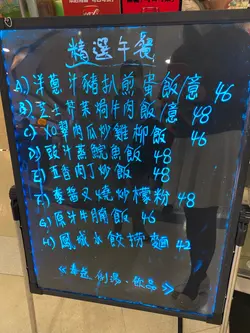 精選午餐
A) 洋蔥汁豬扒煎蛋飯 46
B) 芝士火菜焗牛肉飯 48
C) 瓜炒雞柳飯 46
D) 豉汁蒸鯇魚飯 48
E) 五香肉丁炒飯 48
F) 李醬叉燒炒檬粉 48
G) 原汁牛腩飯 46
H) 鳳城水餃撈麵 42
例湯、飲品